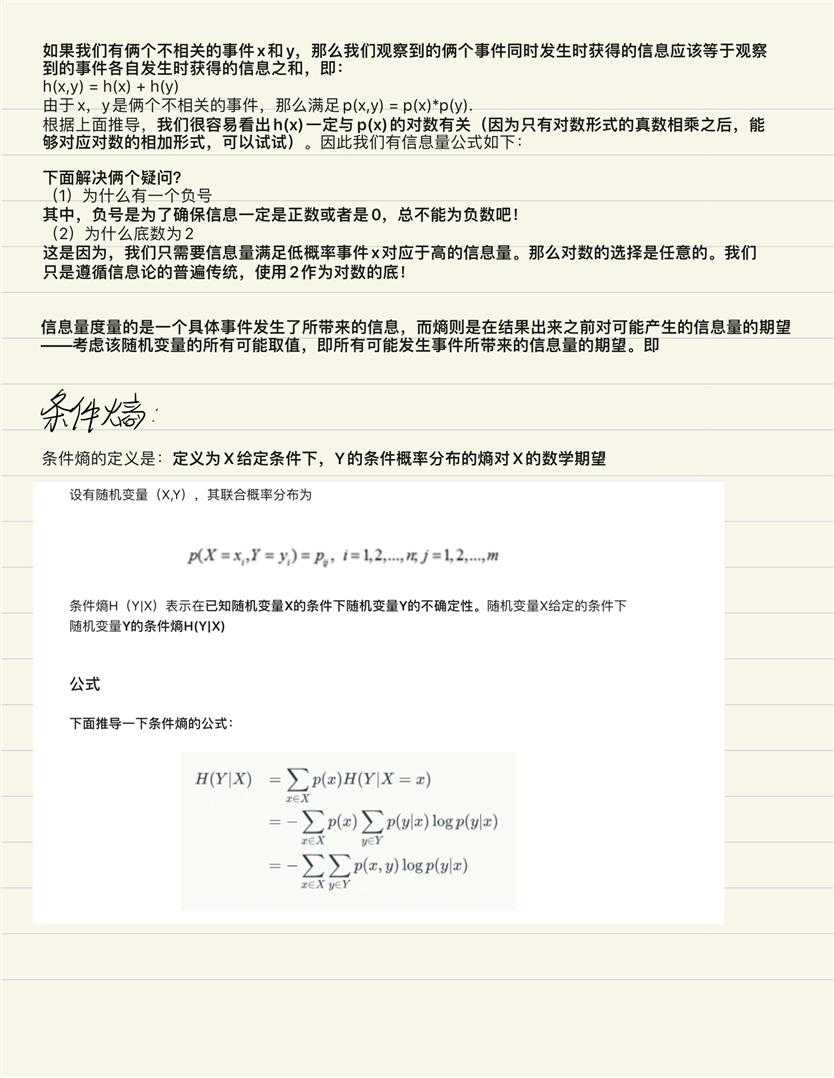 如果我们有俩个不相关的事件x和y，那么我们观察到的俩个事件同时发生时获得的信息应该等于观察
到的事件各自发生时获得的信息之和，即：
h(x,y) = h(x) + h(y)
由于x，y是俩个不相关的事件，那么满足p(x,y) = p(x)*p(y).
根据上面推导，我们很容易看出h(x)一定与p(x)的对数有关（因为只有对数形式的真数相乘之后，能
够对应对数的相加形式，可以试试）。因此我们有信息量公式如下：
下面解决俩个疑问？
（1）为什么有一个负号
其中，负号是为了确保信息一定是正数或者是0，总不能为负数吧！
（2）为什么底数为2
这是因为，我们只需要信息量满足低概率事件x对应于高的信息量。那么对数的选择是任意的。我们
只是遵循信息论的普遍传统，使用2作为对数的底！
信息量度量的是一个具体事件发生了所带来的信息，而熵则是在结果出来之前对可能产生的信息量的期望
——考虑该随机变量的所有可能取值，即所有可能发生事件所带来的信息量的期望。即
条件熵：
条件熵的定义是：定义为X给定条件下，Y的条件概率分布的熵对X的数学期望
设有随机变量（X,Y），其联合概率分布为
p(X = x_i, Y = y_i) = p_{ij}, i = 1,2,...,n; j = 1,2,...,m
条件熵H（Y|X）表示在已知随机变量X的条件下随机变量Y的不确定性。随机变量X给定的条件下
随机变量Y的条件熵H(Y|X)
公式
下面推导一下条件熵的公式：
H(Y|X) = ∑_{x∈X} p(x)H(Y|X = x)
= − ∑_{x∈X} p(x) ∑_{y∈Y} p(y|x) log p(y|x)
= − ∑_{x∈X} ∑_{y∈Y} p(x, y) log p(y|x)